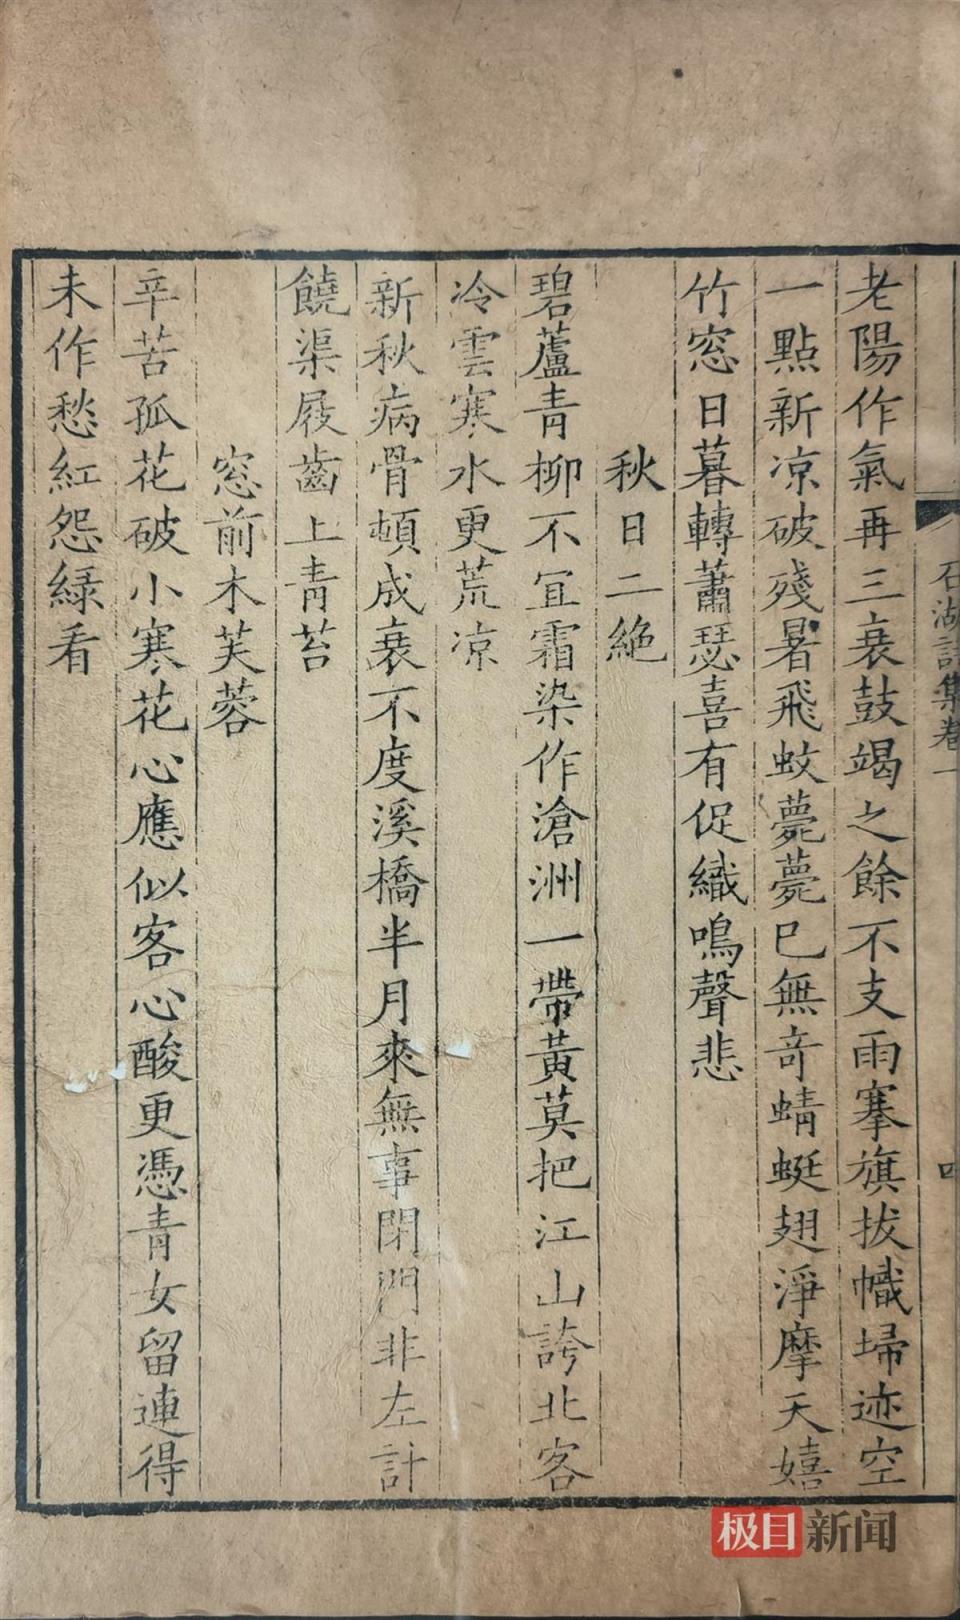 石湖詩集卷一
四
老陽作氣再三衰鼓竭之餘不支雨搴旗拔幟埽迹空
一點新凉破殘暑飛蚊薨薨已無奇蜻蜓翅淨摩天嬉
竹窓日暮轉蕭瑟喜有促織鳴聲悲
秋日二絶
碧蘆青柳不宜霜染作滄洲一帶黃莫把江山誇北客
冷雲寒水更荒凉
新秋病骨頓成衰不度溪橋半月來無事閉門非左計
饒渠屐齒上青苔
窓前木芙蓉
辛苦孤花破小寒花心應似客心酸更憑青女留連得
未作愁紅怨緑看
极目新闻